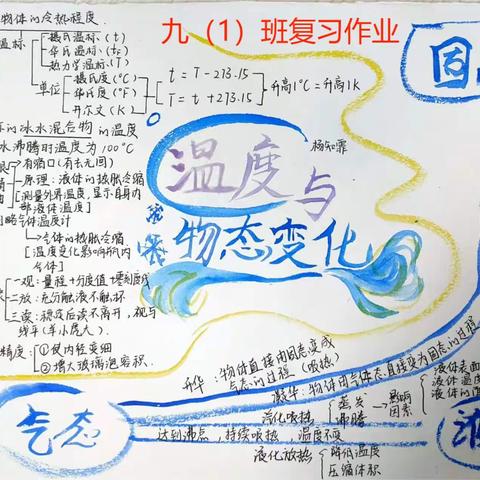 九（1）班复习作业
物体的冷热程度
温标
摄氏温标（t）
华氏温标（tF）
热力学温标（T）
单位
摄氏度（°C）
华氏度（°F）
开尔文（K）
t = T - 273.15
T = t + 273.15
升高1°C = 升高1K
的冰水混合物的温度
水沸腾时温度为100°C
杨知霏
温度与
物态变化
有缩口（有去无回）
原理：液体的热胀冷缩
[测量外界温度，显示自身内
部液体温度]
气体温度计
气体的热胀冷缩
[温度变化影响瓶内
气体]
一观：量程+分度值+零刻度线
二放：充分触液不触坏
三读：稳定后读不离开，视与
线平（羊小虎大）
精度：
①使内径变细
②增大玻璃泡容积
升华：物体直接由固态变成
气态的过程（吸热）
凝华：物体由气体态直接变为固态的过程
汽化吸热
蒸发
沸腾
影响
因素
液体表面
液体温度
液体
达到沸点，持续吸热，温度不变
液化放热
降低温度
压缩体积
固
气态
液